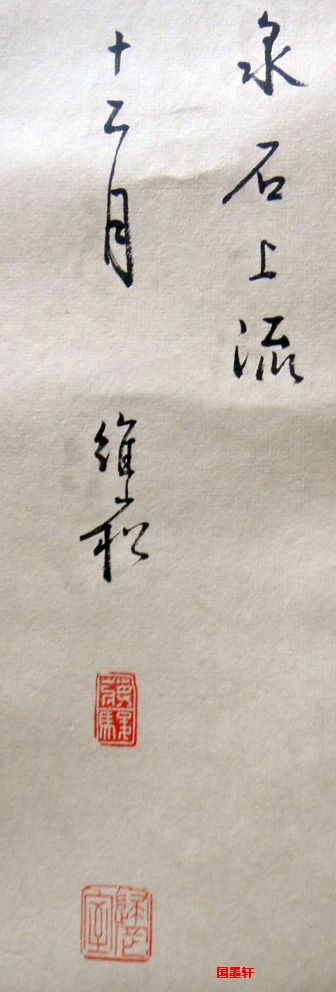 泉石上流
十二月 維崧
国墨轩